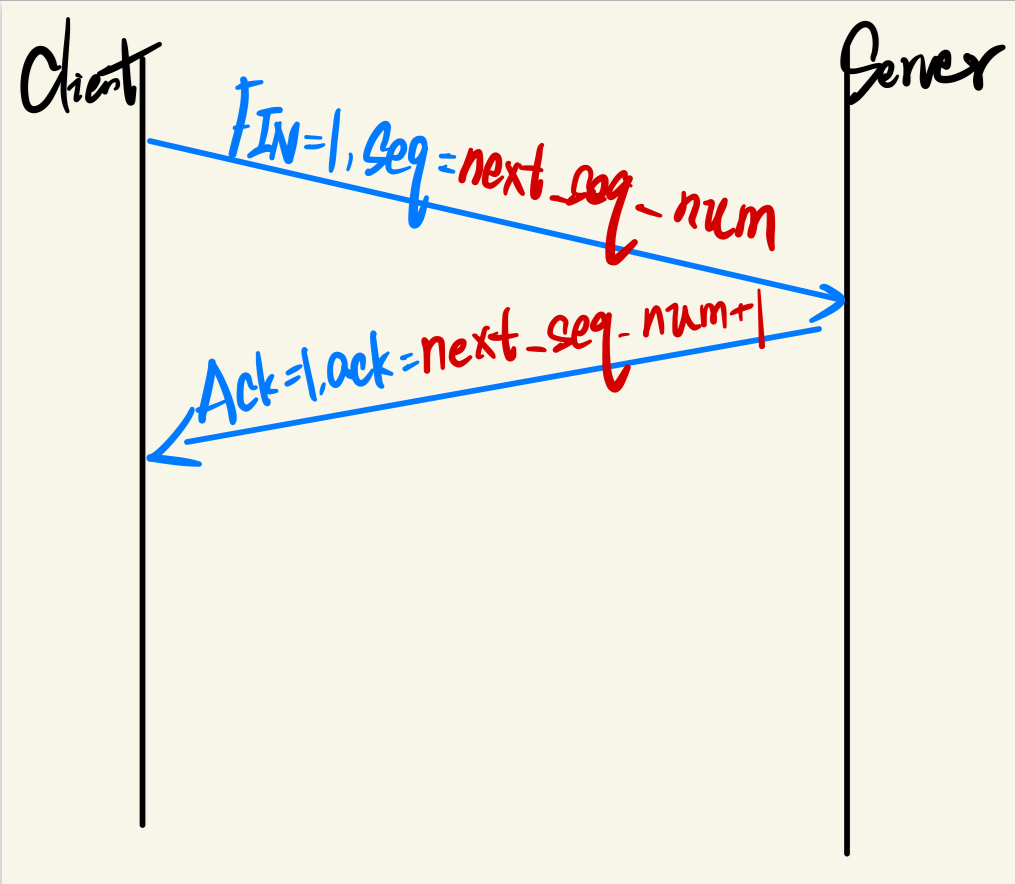 Client
Server
FIN=1, seq=next_seq_num
Ack=1, ack=next_seq_num+1